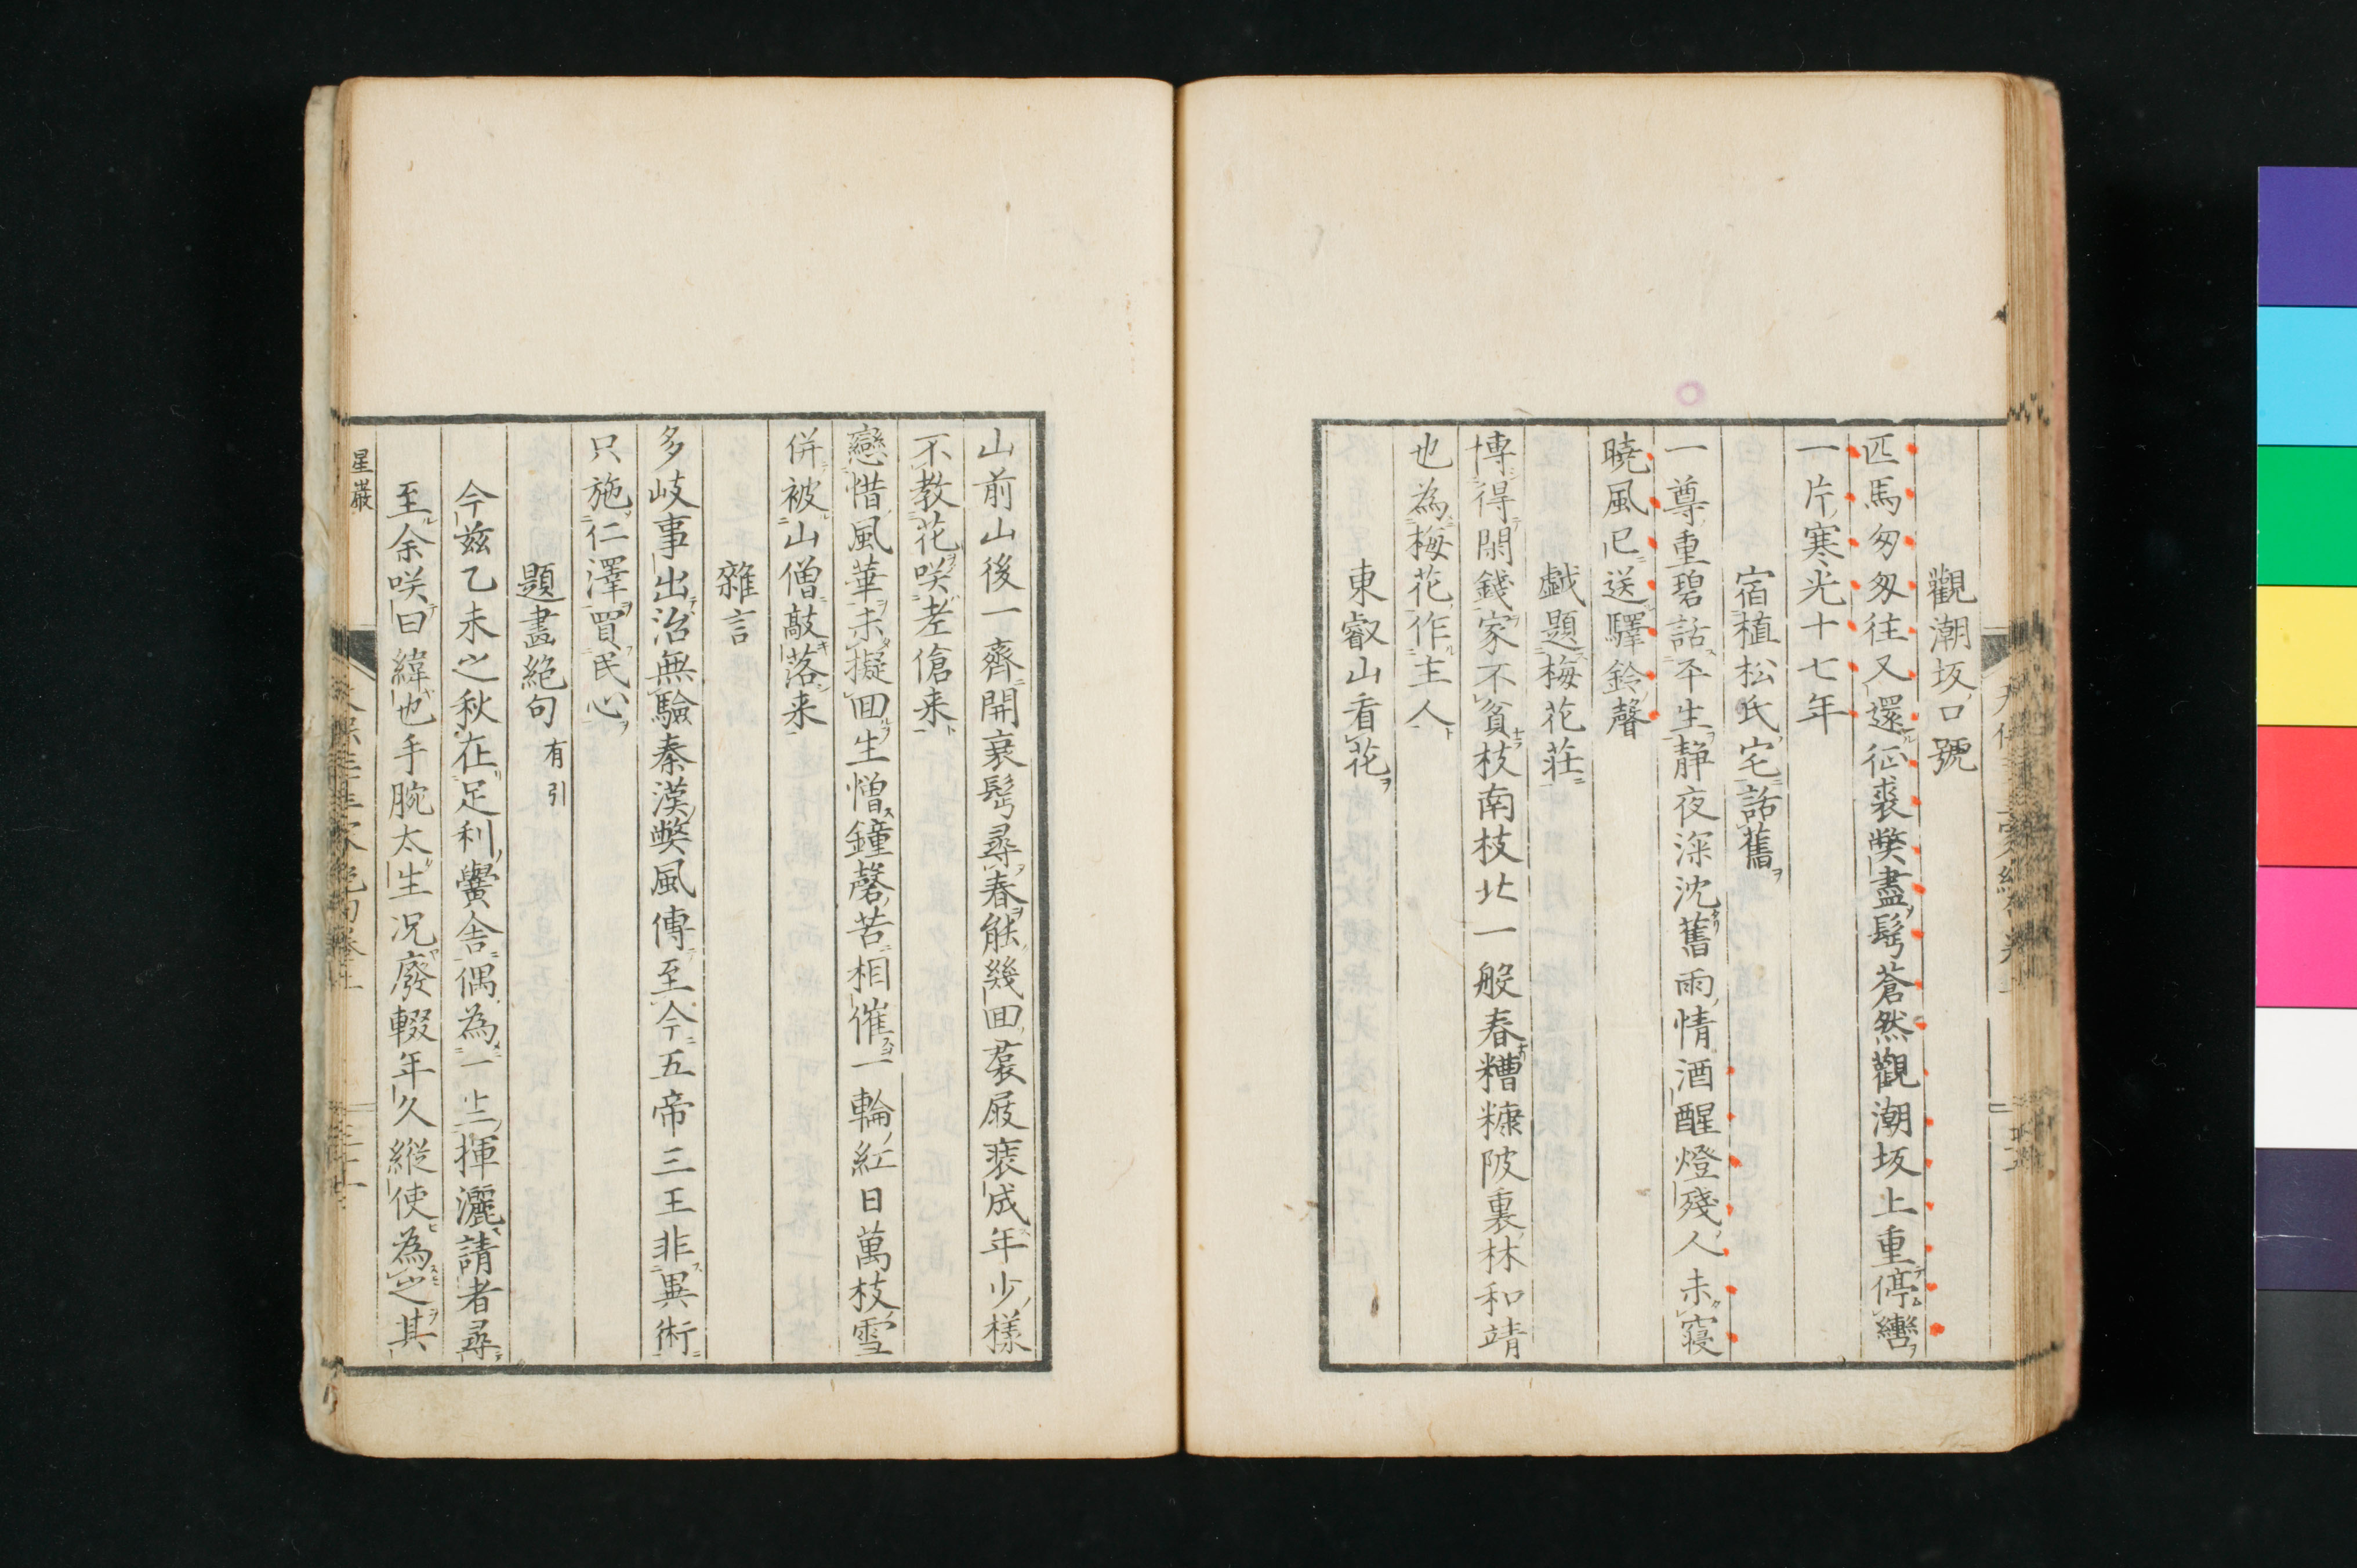 觀潮坂口號
匹馬匆匆往又還征裘弊盡鬂蒼然觀潮坂上重停轡
一片寒光十七年
宿植松氏宅話舊
一尊重碧話平生靜夜深沈舊雨情酒醒燈殘人未寢
曉風已送驛鈴聲
戯題梅花莊
博得閑錢家不貧枝南枝北一般春糟糠陂裏林和靖
也為梅花作主人
東叡山看花
山前山後一齊開衰髩尋春能幾回蓑屐裝成年少樣
不教花咲老傖来
戀惜風華未擬回生憎鐘磬苦相催一輪紅日萬枝雪
併被山僧敲落来
雜言
多岐事出治無驗秦漢弊風傳至今五帝三王非異術
只施仁澤買民心
題畫絕句 有引
今茲乙未之秋在足利黌舎偶為一揮灑請者尋
至余咲曰緯也手腕太生况廢輟年久縱使為之其
星巖